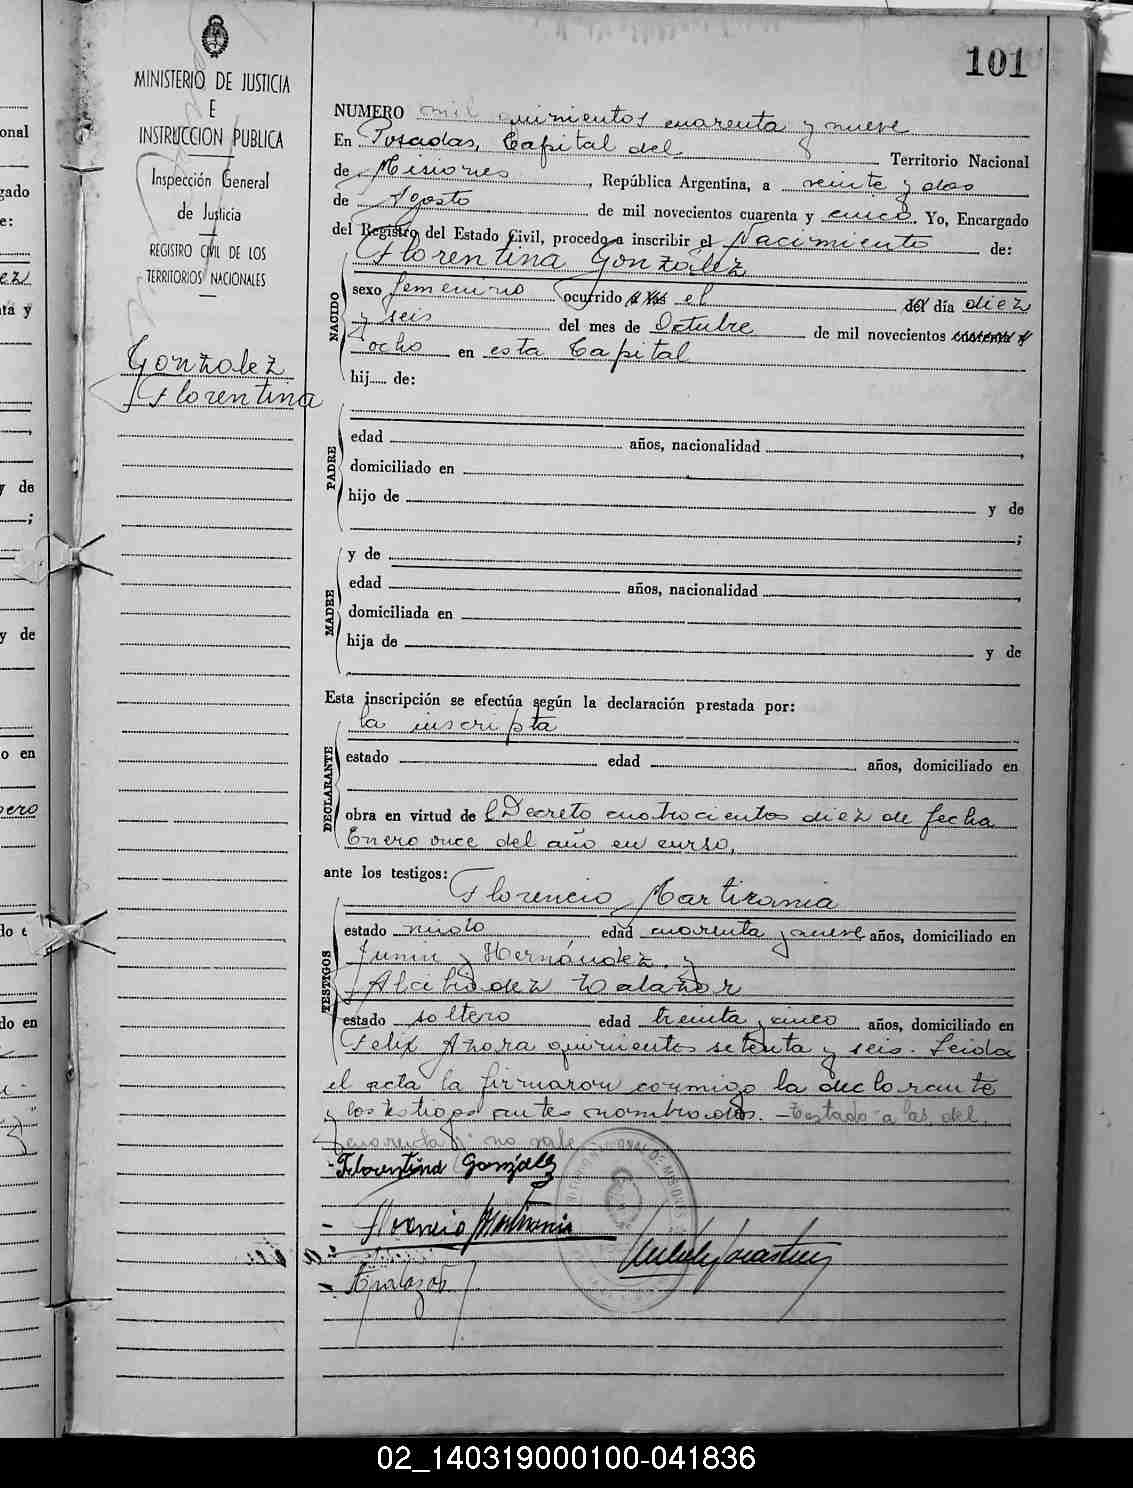 101
MINISTERIO DE JUSTICIA
E
INSTRUCCION PUBLICA
Inspección General
de Justicia
REGISTRO CIVIL DE LOS
TERRITORIOS NACIONALES
Gonzalez
Florentina
NUMERO mil quinientos cuarenta y nueve
En Posadas, Capital del Territorio Nacional
de Misiones, República Argentina, a veinte y dos
de Agosto de mil novecientos cuarenta y cinco. Yo, Encargado
del Registro del Estado Civil, procedo a inscribir el Nacimiento de:
Florentina González
NACIDO
sexo femenino ocurrido a las el del día diez
y seis del mes de Octubre de mil novecientos cuarenta y
ocho en esta Capital
hij..... de:
PADRE
edad años, nacionalidad
domiciliado en
hijo de y de
;
MADRE
y de
edad años, nacionalidad
domiciliada en
hija de y de
Esta inscripción se efectúa según la declaración prestada por:
la inscripta
DECLARANTE
estado edad años, domiciliado en
obra en virtud del Decreto cuatrocientos diez de fecha
Enero once del año en curso,
ante los testigos:
Florencio Martirania
TESTIGOS
estado viudo edad cuarenta y nueve años, domiciliado en
Junin y Hernández. y
Alcibiadez Balazor
estado soltero edad treinta y cinco años, domiciliado en
Felix Azara quinientos setenta y seis. Leida
el acta la firmaron conmigo la declarante
y los testigos antes nombrados. - Testado: a las, del,
cuarenta y: no vale
- Florentina González
- Florencio Martirania
02_140319000100-041836